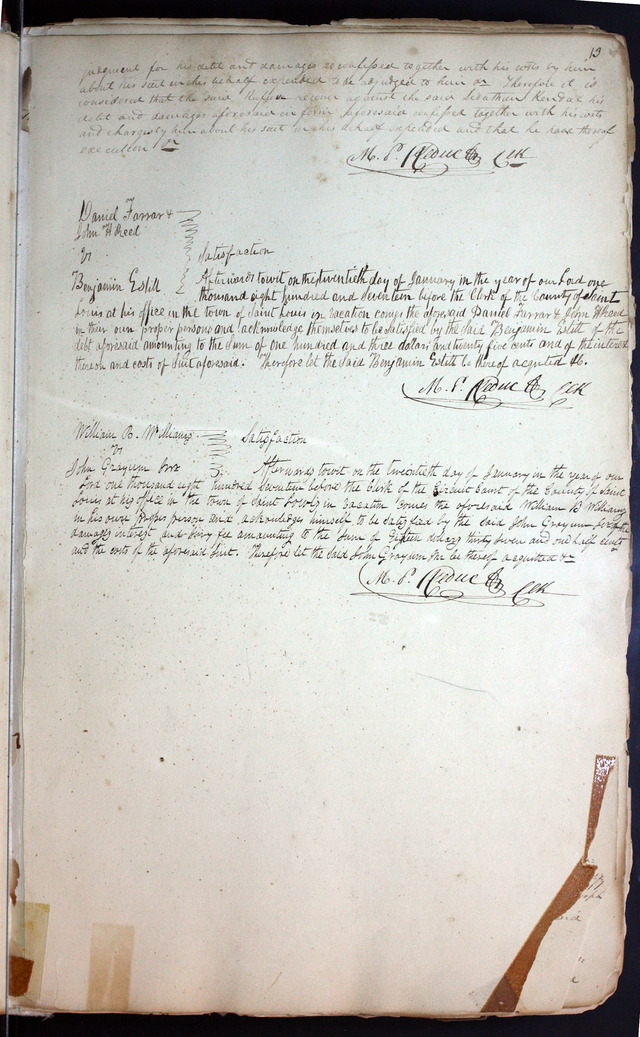 13
judgment for his debt and damages so confessed together with his costs by him
about his suit in this behalf expended to be adjudged to him &c. Therefore it is
considered that the said Ruffin recover against the said Leathan Kendal his
debt and damages aforesaid in form aforesaid confessed together with his costs
and charges by him about his suit in this behalf expended and that he have thereof
execution &c
M. P. Leduc Clk
Daniel Farrar &
John H Reed
vs
Satisfaction
Benjamin Estill
Afterwards towit on the twentieth day of January in the year of our Lord one
thousand eight hundred and seventeen before the Clerk of the County of Saint
Louis at his office in the town of Saint Louis in vacation comes the aforesaid Daniel Farrar & John H Reed
in their own proper persons and acknowledge themselves to be satisfied by the said Benjamin Estill of the
debt aforesaid amounting to the sum of one hundred and three dollars and twenty five cents and of the interest
thereon and costs of suit aforesaid. Therefore let the said Benjamin Estill be thereof acquited &c.
M. P. Leduc Clk
William B. Williams
vs
Satisfaction
John Grayum
Afterwards towit on the twentieth day of January in the year of our
Lord one thousand eight hundred Seventeen before the Clerk of the Circuit Court of the County of Saint
Louis at his office in the town of Saint Louis in vacation Comes the aforesaid William B Williams
in his own proper person and acknowledges himself to be satisfied by the said John Grayum for the
damages interest and Jury fee amounting to the sum of fifteen dollars thirty seven and one half cents
and the costs of the aforesaid suit. Therefore let the said John Grayum be thereof acquitted &c
M. P. Leduc Clk